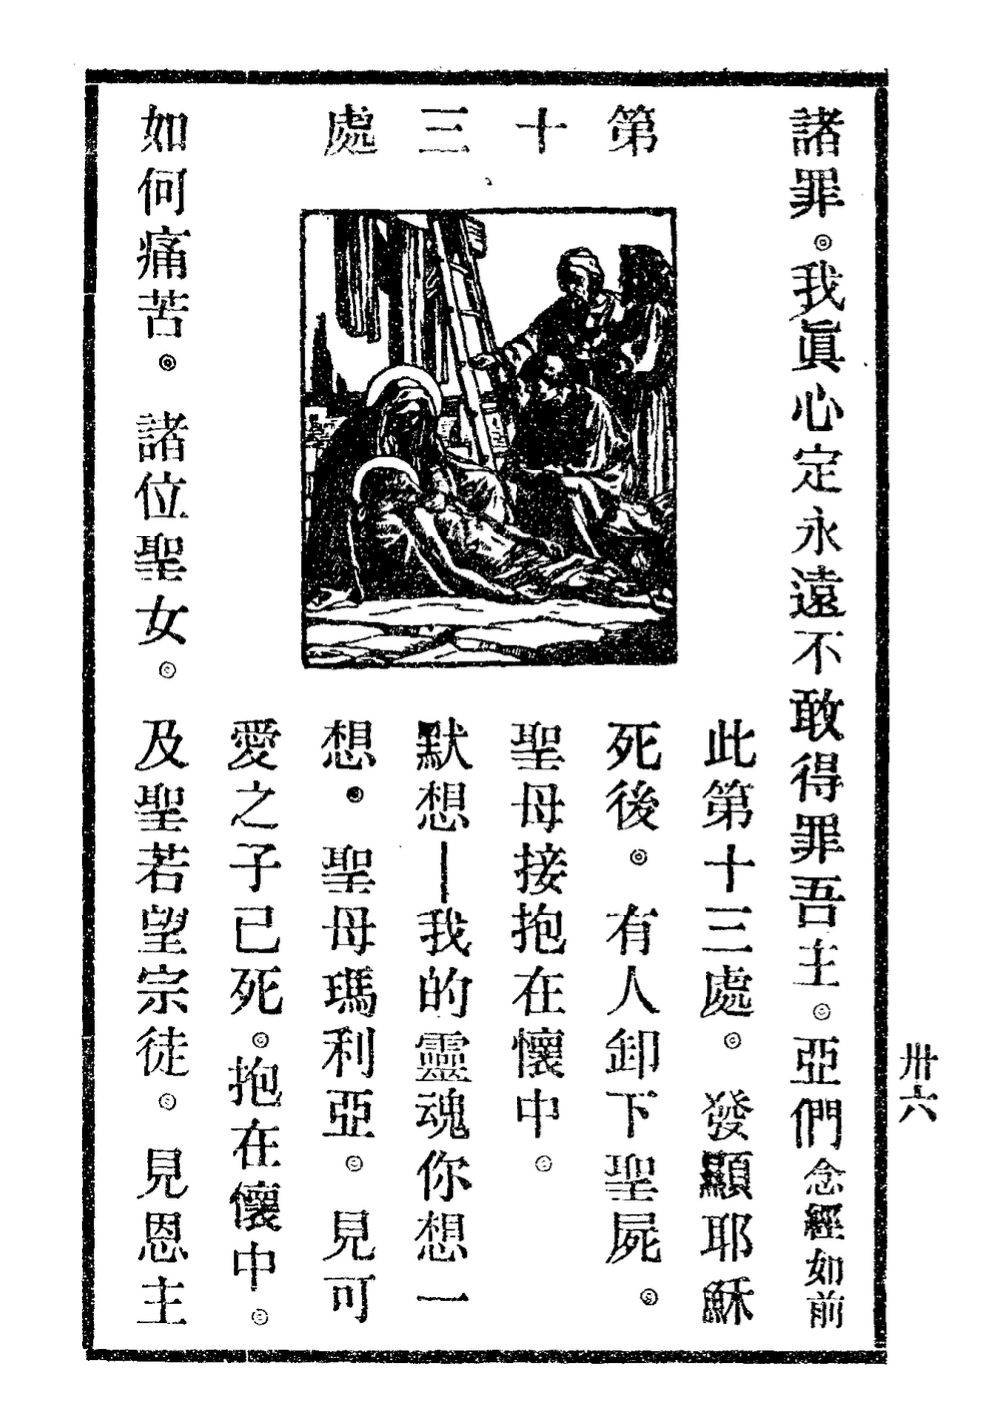 諸罪。我眞心定永遠不敢得罪吾主。亞們念經如前
第十三處
此第十三處。發顯耶穌
死後。有人卸下聖屍。
聖母接抱在懷中。
默想—我的靈魂你想一
想。聖母瑪利亞。見可
愛之子已死。抱在懷中。
如何痛苦。諸位聖女。及聖若望宗徒。見恩主
卅六